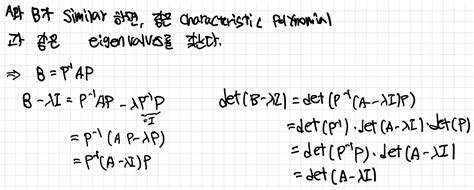 A와 B가 Similar 하면, 같은 characteristic Polynomial
과 같은 eigenvalues를 갖는다.
⇒ B = P⁻¹AP
B-λI = P⁻¹AP - λP⁻¹P
I
= P⁻¹(AP-λP)
= P⁻¹(A-λI)P
det(B-λI) = det(P⁻¹(A-λI)P)
= det(P⁻¹)·det(A-λI)·det(P)
= det(P⁻¹P)·det(A-λI)
= det(A-λI)